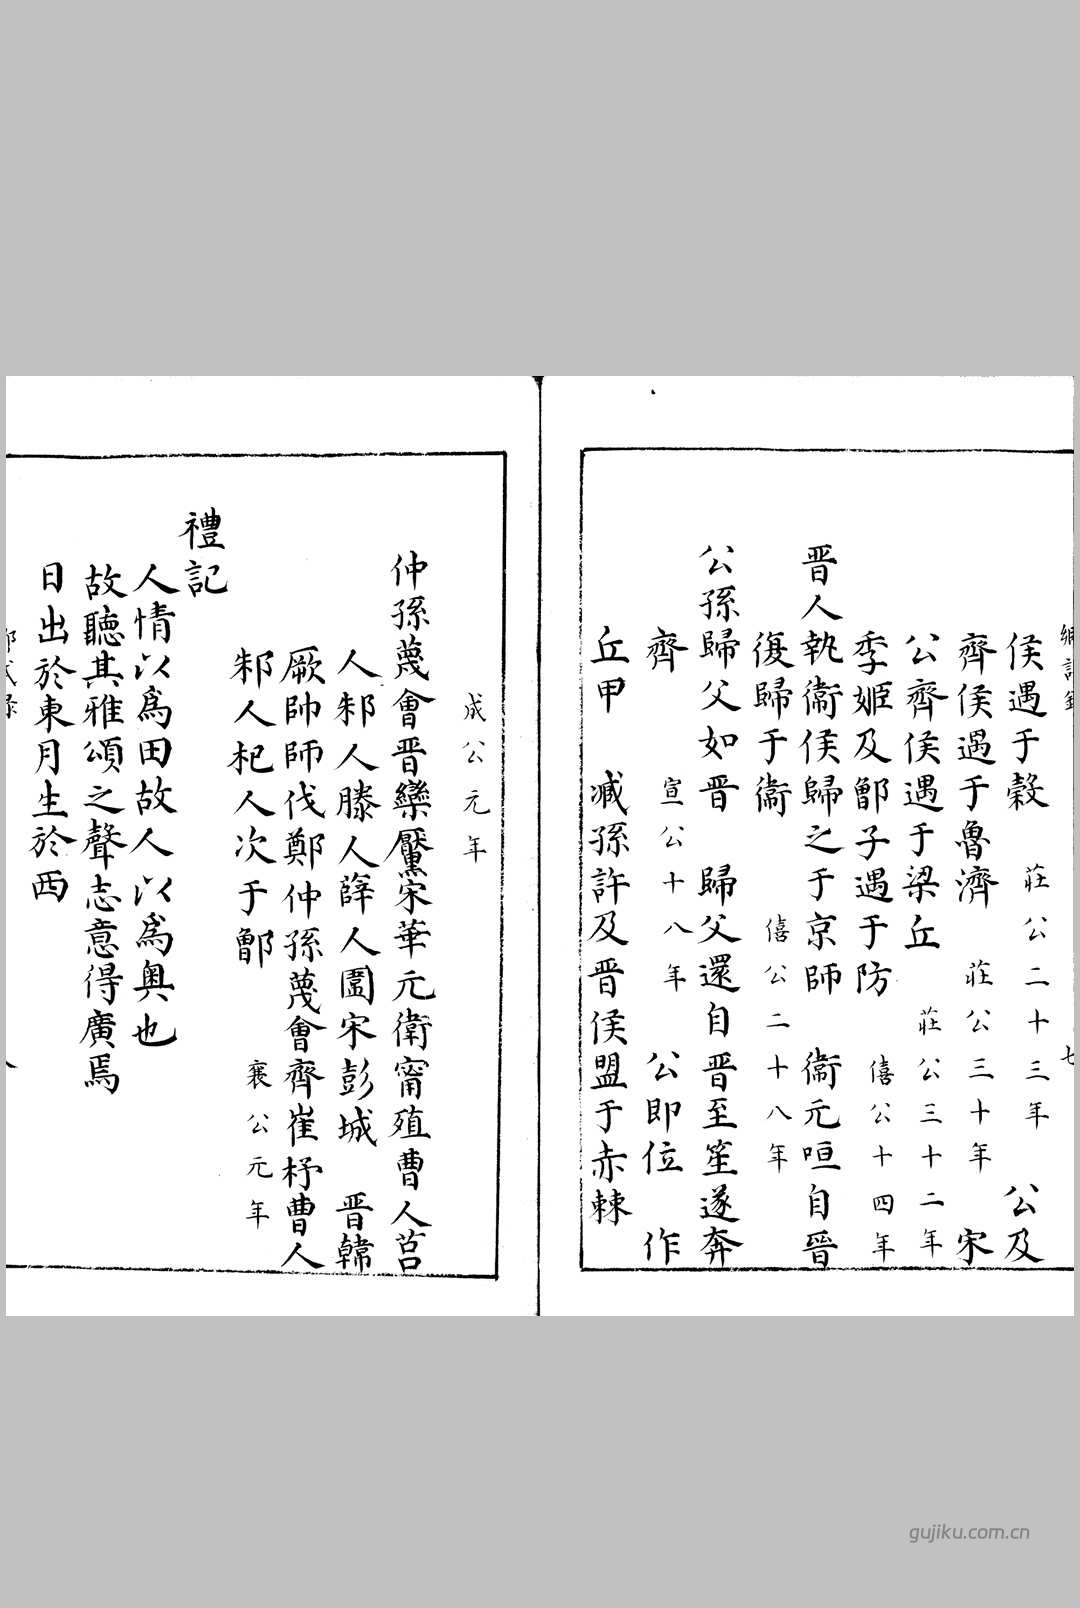 鄉試錄 七
侯遇于榖 莊公二十三年 公及
齊侯遇于魯濟 莊公三十年 宋
公齊侯遇于梁丘 莊公三十二年
季姬及鄫子遇于防 僖公十四年
晋人執衞侯歸之于京師 衞元咺自晉
復歸于衞 僖公二十八年
公孫歸父如晋 歸父還自晋至笙遂奔
齊 宣公十八年 公即位 作
丘甲 臧孫許及晋侯盟于赤棘
成公元年
仲孫蔑會晋欒黶宋華元衛甯殖曹人莒
人邾人滕人薛人圍宋彭城 晋韓
厥帥師伐鄭仲孫蔑會齊崔杼曹人
邾人杞人次于鄫 襄公元年
禮記
人情以為田故人以為奥也
故聽其雅頌之聲志意得廣焉
日出於東月生於西
gujiku.com.cn